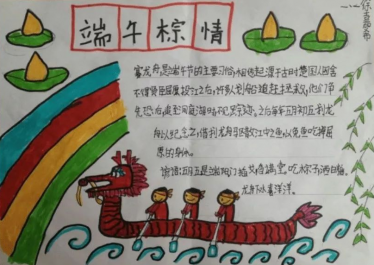 端午棕情
赛龙舟,是端午节的主要习俗,相传起源于古时楚国人因舍
不得贤臣屈原投江之后,许多人划船追赶拯救,他们争
先恐后,追至洞庭湖时不见踪迹。之后每年五月初五划龙
舟以纪念之,借划龙舟驱散江中之鱼,以免鱼吃掉屈
原的身体。
龙舟下水喜洋洋。